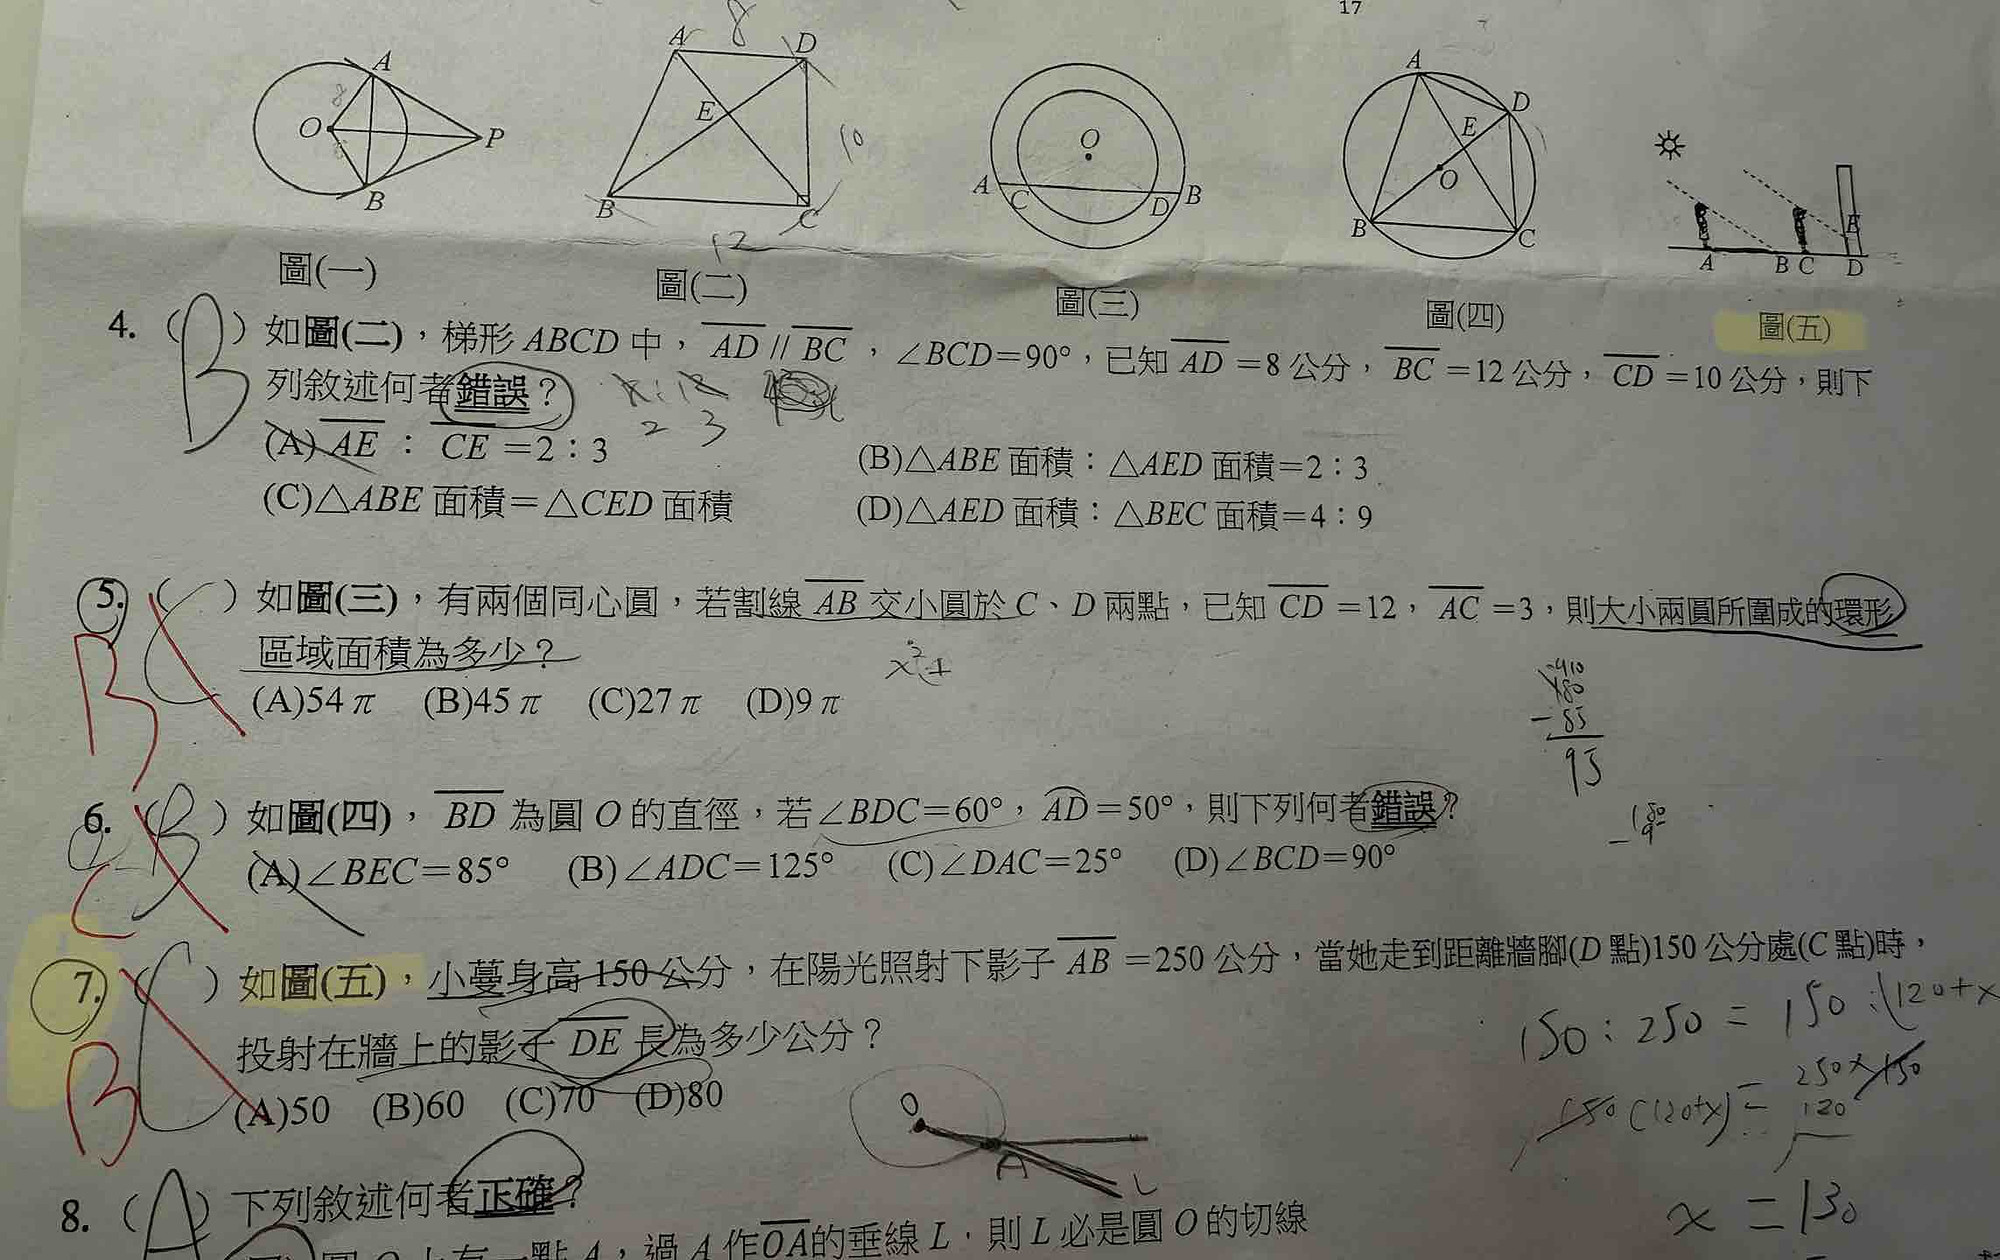 17
A 8 D
A
O
P
B
E
10
B
C
12
O
A
C
D
B
A
D
E
O
B
C
E
A
B
C
D
圖(一)
圖(二)
圖(三)
圖(四)
圖(五)
4. ( B ) 如圖(二),梯形 ABCD 中, AD // BC ,∠BCD=90°,已知 AD =8 公分, BC =12 公分, CD =10 公分,則下
列敘述何者錯誤?
2 3
(A) AE : CE =2:3
(B)△ABE 面積:△AED 面積=2:3
(C)△ABE 面積=△CED 面積
(D)△AED 面積:△BEC 面積=4:9
5. ( C ) 如圖(三),有兩個同心圓,若割線 AB 交小圓於 C、D 兩點,已知 CD =12, AC =3,則大小兩圓所圍成的環形
B
區域面積為多少?
x²+
(A)54π (B)45π (C)27π (D)9π
-85
95
6. ( B ) 如圖(四), BD 為圓 O 的直徑,若∠BDC=60°, AD=50°,則下列何者錯誤?
C
(A)∠BEC=85° (B)∠ADC=125° (C)∠DAC=25° (D)∠BCD=90°
7. ( C ) 如圖(五),小蔓身高 150 公分,在陽光照射下影子 AB =250 公分,當她走到距離牆腳(D 點)150 公分處(C 點)時,
B
投射在牆上的影子 DE 長為多少公分?
(A)50 (B)60 (C)70 (D)80
150:250=150:(120+x
150(120+x)=250×150
120
x=130
O
A
L
8. ( A ) 下列敘述何者正確?
圓 O 上有一點 A,過 A 作OA的垂線 L,則 L 必是圓 O 的切線